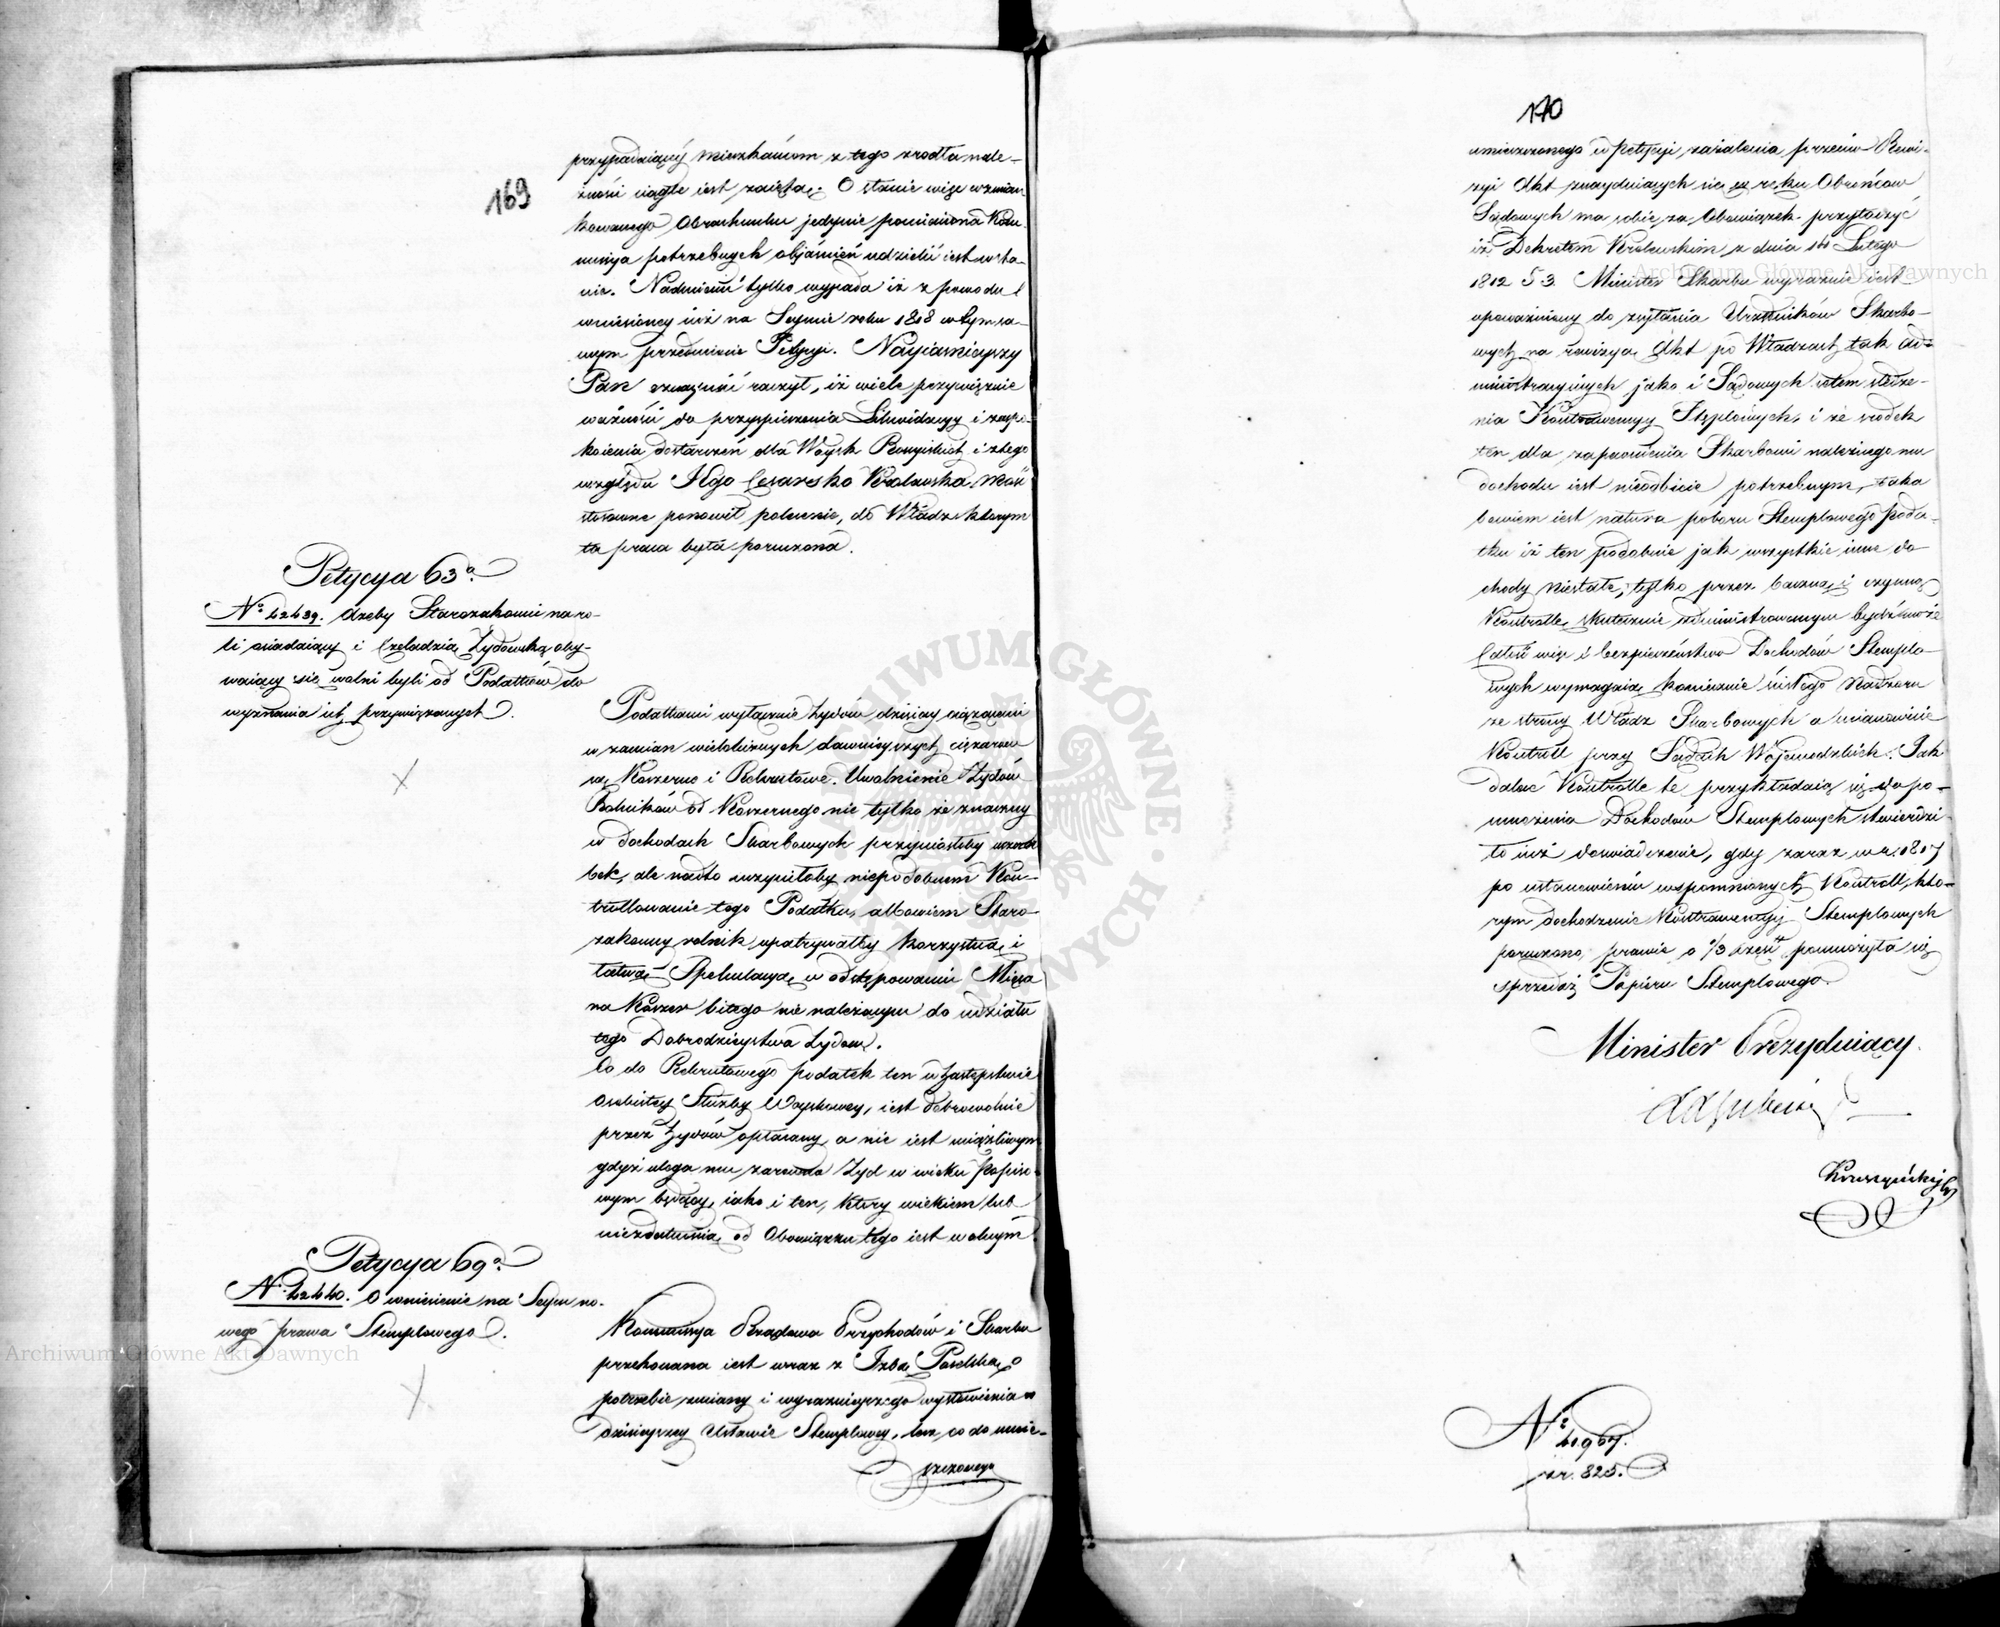 169
przypadaiący mieszkańcom z tego zrodła nale-
żności ciągle iest zaiętą. O stanie więc wzmian-
kowanego Obrachunku jedynie pomieniona Kom-
missya potrzebnych objaśnień udzielić iest w sta-
nie. Nadmienić tylko wypada iż z powodu
wniesioney iuż na Seymie roku 1818 w tym sa-
mym przedmiocie Petycyi. Nayiaśnieyszy
Pan oznaymić raczył, iż wiele przywięzuie
ważności do przyspieszenia Likwidacyi i zaspo-
koienia dostarczeń dla Woysk Rossyiskich i z tego
względu Jego Cesarsko Krolewska Mość
stosowne ponowił polecenia, do Władz którym
ta praca była poruczona.
Petycya 63a.
No 42439. Ażeby Starozakonni na ro-
li osiadaiący i Czeladzią Żydowską oby-
waiący się wolni byli od Podatków do
wyznania ich przywiązanych.
Podatkami wyłącznie Żydów dzisiay ciążącemi
w zamian wielolicznych dawnieyszych ciężarów
są Koszerne i Rekrutowe. Uwolnienie Żydów
Rolników od Koszernego nie tylko że znaczny
w dochodach Skarbowych przyniosłoby uszczer-
bek, ale nadto uczyniłoby niepodobnem Kon-
trollowanie tego Podatku, albowiem Staro-
zakonny rolnik upatrywałby korzystną i
łatwą Spekulacyą w odstępowaniu Mięsa
na Koszer bitego nie należącym do udziału
tego Dobrodzieystwa Żydom.
Co do Rekrutowego podatek ten w zastępstwie
osobistey Służby Woyskowey, iest dobrowolnie
przez Żydów opłacany, a nie iest uciążliwym
gdyż ulega mu zarowno Żyd w wieku Popiso-
wym będący, iako i ten, który wiekiem lub
niezdatnością od Obowiązku tego iest wolnym
Petycya 69a.
No 42440. O wniesienie na Seym no-
wego prawa Stemplowego.
Kommissya Rządowa Przychodów i Skarbu
przekonana iest wraz z Izbą Poselską o
potrzebie zmiany i wyraznieyszego wysłowienia w
dzisieyszey Ustawie Stemplowey, lecz co do umie-
szczonego
170
umieszczonego w petycyi zażalenia przeciw Rewi-
zyi Akt znayduiących się w ręku Obrońców
Sądowych ma sobie za Obowiązek przytoczyć
iż Dekretem Krolewskim z dnia Lutego
1812 § 3. Minister Skarbu wyraznie iest
upoważniony do zsyłania Urzędników Skarbo-
wych na rewizyą Akt po Władzach tak Ad-
ministracyinych jako i Sądowych celem śledze-
nia Kontrawencyy Stęplowych, i że srodek
ten dla zapewnienia Skarbowi należnego mu
dochodu iest nieodbicie potrzebnym, taka
bowiem iest natura poboru Stemplowego Poda-
tku iż ten podobnie jak wszystkie inne do-
chody niestałe, tylko przez baczną i czynną
Kontrollę skutecznie administrowanym bydź może
Całość więc i bezpieczeństwo Dochodów Stemplo-
wych wymagaią koniecznie ścisłego Nadzoru
ze strony Władz Skarbowych a mianowicie
Kontroll przy Sądach Woiewodzkich. Jak
dalece Kontrolle te przykładaią się do po-
mnożenia Dochodów Stemplowych stwierdzi-
ło iuż doswiadczenie, gdy zaraz w r. 1817
po ustanowieniu wspomnionych Kontroll, któ-
rym dochodzenie Kontrawencyy Stemplowych
poruczono, prawie o 1/3 część pomnożyła się
sprzedaż Papieru Stemplowego.
Minister Prezyduiący.
Kruszyński
No
41967.
825.
Archiwum Główne Akt Dawnych
Archiwum Główne Akt Dawnych
ARCHIWUM GŁÓWNE AKT DAWNYCH